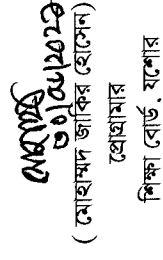 ৩০/০৫/২০২১
( মোহাম্মদ জাকির হোসেন)
প্রোগ্রামার
শিক্ষা বোর্ড যশোর